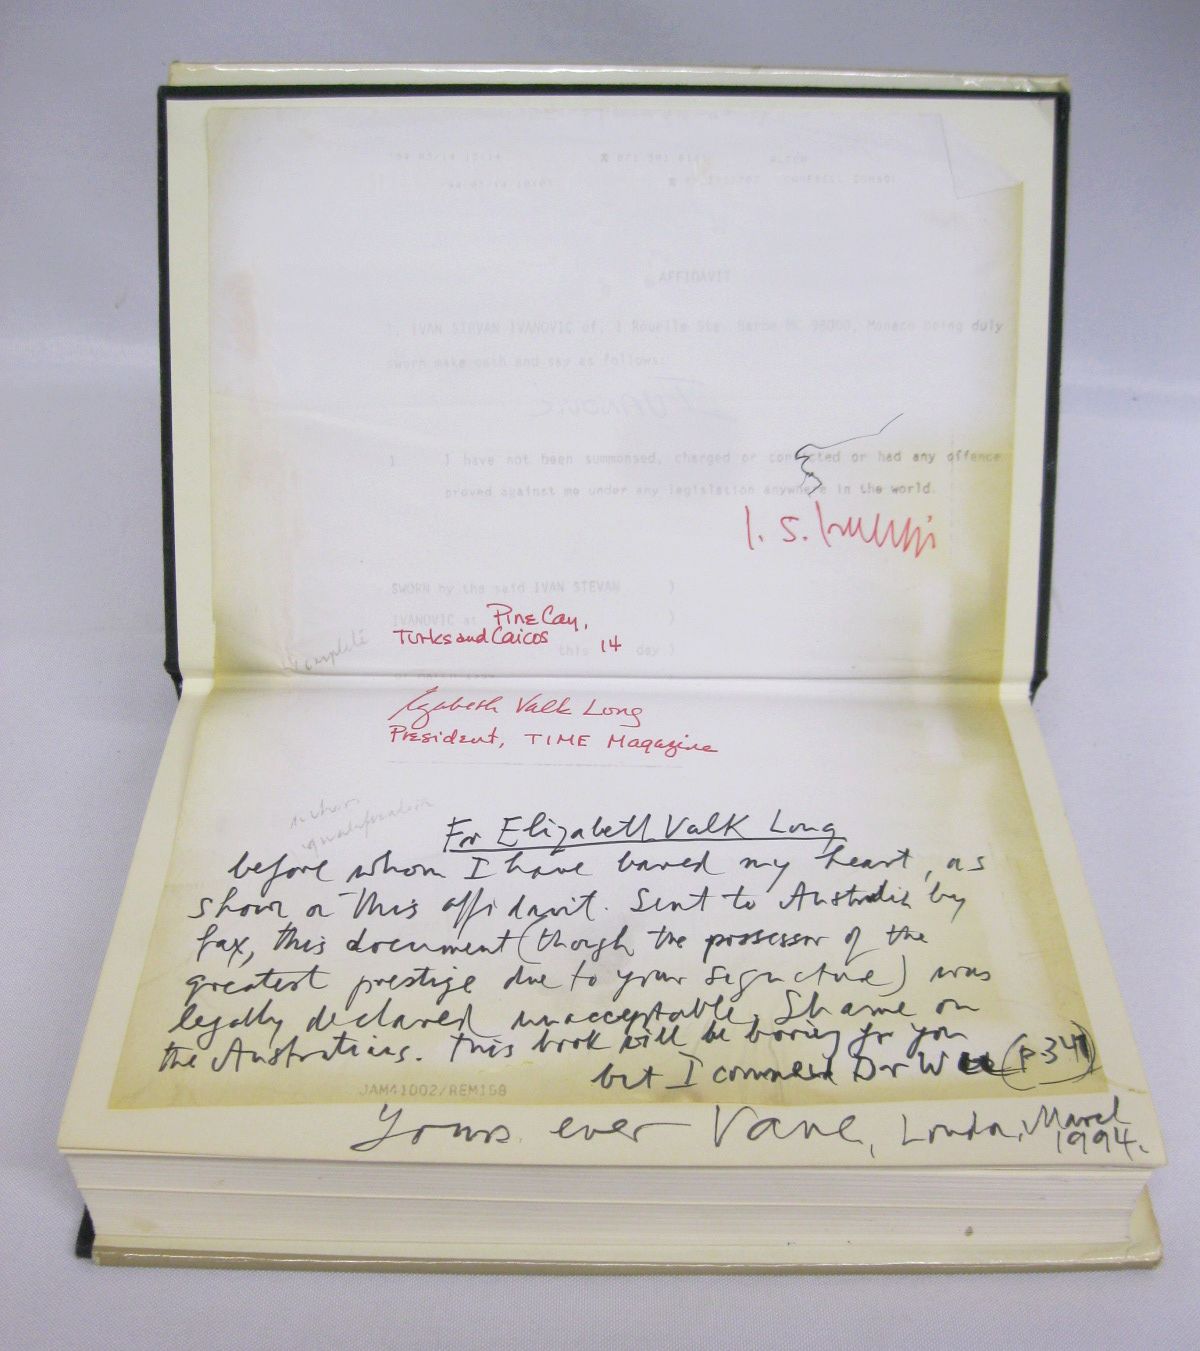 AFFIDAVIT
I, IVAN STEVAN IVANOVIC of, 1 Monaco being duly
sworn make oath and say as follows:
IVANOVIC
1 I have not been summonsed, charged or convicted or had any offence
proved against me under any legislation anywhere in the world.
I. S.
SWORN by the said IVAN STEVAN )
IVANOVIC at Pine Cay, )
Turks and Caicos
this 14 day )
complete
Elizabeth Valk Long
President, TIME Magazine
author
qualification
For Elizabeth Valk Long
before whom I have bared my heart, as
shown on this affidavit. Sent to Australia by
fax, this document (though the possessor of the
greatest prestige due to your signature) was
legally declared unacceptable. Shame on
the Australians. This book will be boring for you
but I commend (p 341)
JAM41002/REM158
Yours ever Vane, London, March
1994.